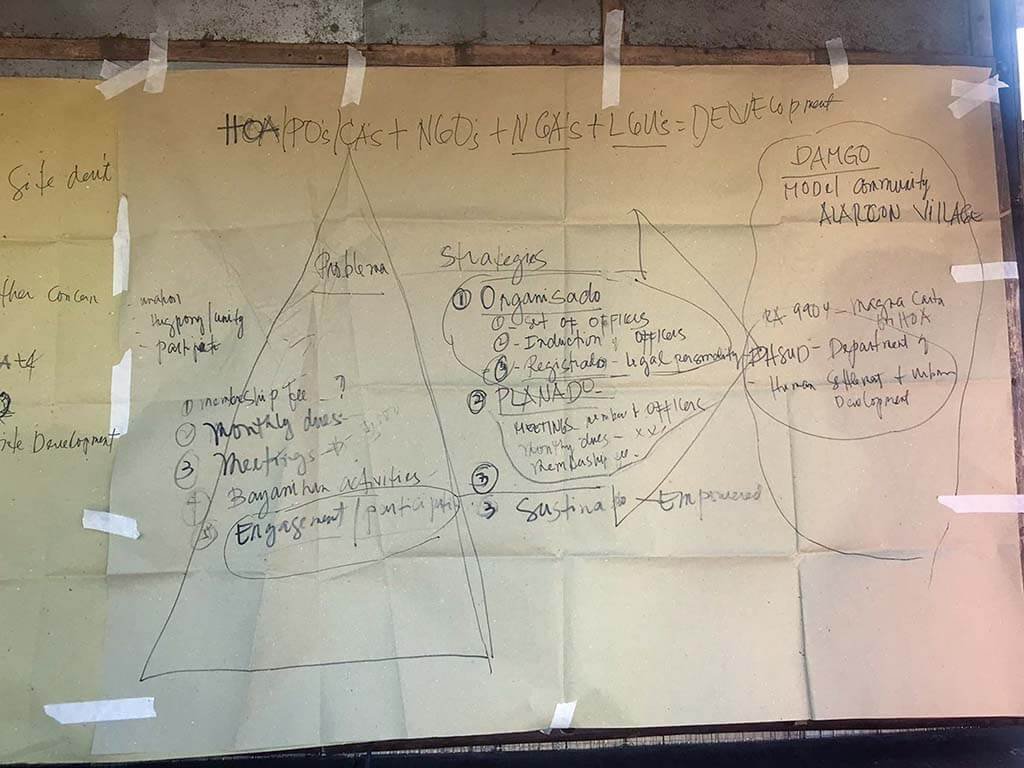 HOA/PO's/CA's + NGO's + NGA's + LGU's = DEVElopment
Site dev't
ther concern
nte Development
Problema
- hugpong/unity
① membership Fee - ?
② Monthly dues -
③ Meetings -
4 Bayanihan activities
⑤ Engagement /
Strategies
① Organisado
① - Set of OFFICERS
② - Induction of OFFICERS
③ - Registrado - Legal personality
② PLANADO -
MEETINGS - number & OFFICERS
Monthly dues -
Membership
③
3 Sustinable - Empowered
DAMGO
MODEL Community
ALARCON VILLAGE
RA - 9904 - Magna Carta
HOA
DHSUD - Department of
- Human Settlement & Urban
Development